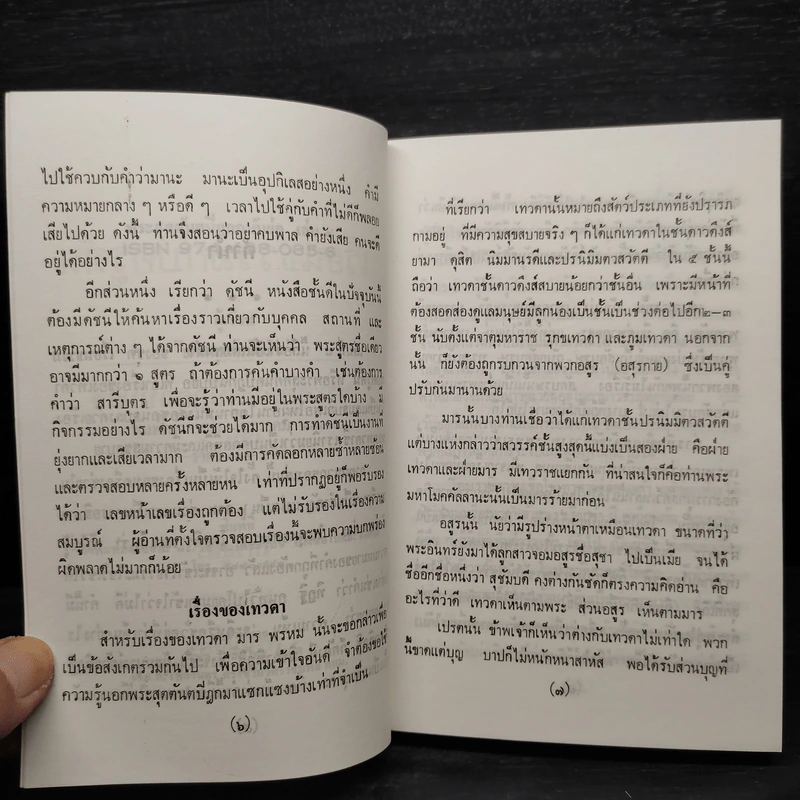 ไปใช้ควบกับคำว่ามานะ มานะเป็นอุปกิเลสอย่างหนึ่ง คำมี
ความหมายกลาง ๆ หรือดี ๆ เวลาไปใช้คู่กับคำที่ไม่ดีก็พลอย
เสียไปด้วย ดังนี้ ท่านจึงสอนว่าอย่าคบพาล คำยังเสีย คนจะดี
อยู่ได้อย่างไร
อีกส่วนหนึ่ง เรียกว่า ดัชนี หนังสือชั้นดีในปัจจุบันนี้
ต้องมีดัชนีให้ค้นหาเรื่องราวเกี่ยวกับบุคคล สถานที่ และ
เหตุการณ์ต่าง ๆ ได้จากดัชนี ท่านจะเห็นว่า พระสูตรชื่อเดียว
อาจมีมากกว่า ๑ สูตร ถ้าต้องการค้นคำบางคำ เช่นต้องการ
คำว่า สารีบุตร เพื่อจะรู้ว่าท่านมีอยู่ในพระสูตรใดบ้าง มี
กิจกรรมอย่างไร ดัชนีก็จะช่วยได้มาก การทำดัชนีเป็นงานที่
ยุ่งยากและเสียเวลามาก ต้องมีการคัดลอกหลายซ้ำหลายซ้อน
และตรวจสอบหลายครั้งหลายหน เท่าที่ปรากฏอยู่ก็พอรับรอง
ได้ว่า เลขหน้าเลขเรื่องถูกต้อง แต่ไม่รับรองในเรื่องความ
สมบูรณ์ ผู้อ่านที่ตั้งใจตรวจสอบเรื่องนี้จะพบความบกพร่อง
ผิดพลาดไม่มากก็น้อย
เรื่องของเทวดา
สำหรับเรื่องของเทวดา มาร พรหม นั้นจะขอกล่าวเพื่อ
เป็นข้อสังเกตรวมกันไป เพื่อความเข้าใจอันดี จำต้องขอใช้
ความรู้นอกพระสุตตันตปิฎกมาแซกแซงบ้างเท่าที่จำเป็น
(๖)
ที่เรียกว่า เทวดานั้นหมายถึงสัตว์ประเภทที่ยังปรารภ
กามอยู่ ที่มีความสุขสบายจริง ๆ ก็ได้แก่เทวดาในชั้นดาวดึงส์
ยามา ดุสิต นิมมานรดีและปรนิมมิตวสวัตตี ใน ๕ ชั้นนี้
ถือว่า เทวดาชั้นดาวดึงส์สบายน้อยกว่าชั้นอื่น เพราะมีหน้าที่
ต้องสอดส่องดูแลมนุษย์มีลูกน้องเป็นชั้นเป็นช่วงต่อไปอีก๒–๓
ชั้น นับตั้งแต่จาตุมหาราช รุกขเทวดา และภูมเทวดา นอกจาก
นั้น ก็ยังต้องถูกรบกวนจากพวกอสูร (อสุรกาย) ซึ่งเป็นคู่
ปรับกันมานานด้วย
มารนั้นบางท่านเชื่อว่าได้แก่เทวดาชั้นปรนิมมิตวสวัตตี
แต่บางแห่งกล่าวว่าสวรรค์ชั้นสูงสุดนี้แบ่งเป็นสองฝ่าย คือฝ่าย
เทวดาและฝ่ายมาร มีเทวราชแยกกัน ที่น่าสนใจก็คือท่านพระ
มหาโมคคัลลานะนั้นเป็นมารร้ายมาก่อน
อสูรนั้น นัยว่ามีรูปร่างหน้าตาเหมือนเทวดา ขนาดที่ว่า
พระอินทร์ยังมาได้ลูกสาวจอมอสูรชื่อสุชา ไปเป็นเมีย จนได้
ชื่ออีกชื่อหนึ่งว่า สุชัมบดี คงต่างกันชัดก็ตรงความคิดอ่าน คือ
อะไรที่ว่าดี เทวดาเห็นตามพระ ส่วนอสูร เห็นตามมาร
เปรตนั้น ข้าพเจ้าก็เห็นว่าต่างกับเทวดาไม่เท่าใด พวก
นี้ขาดแต่บุญ บาปก็ไม่หนักหนาสาหัส พอได้รับส่วนบุญที่
(๗)